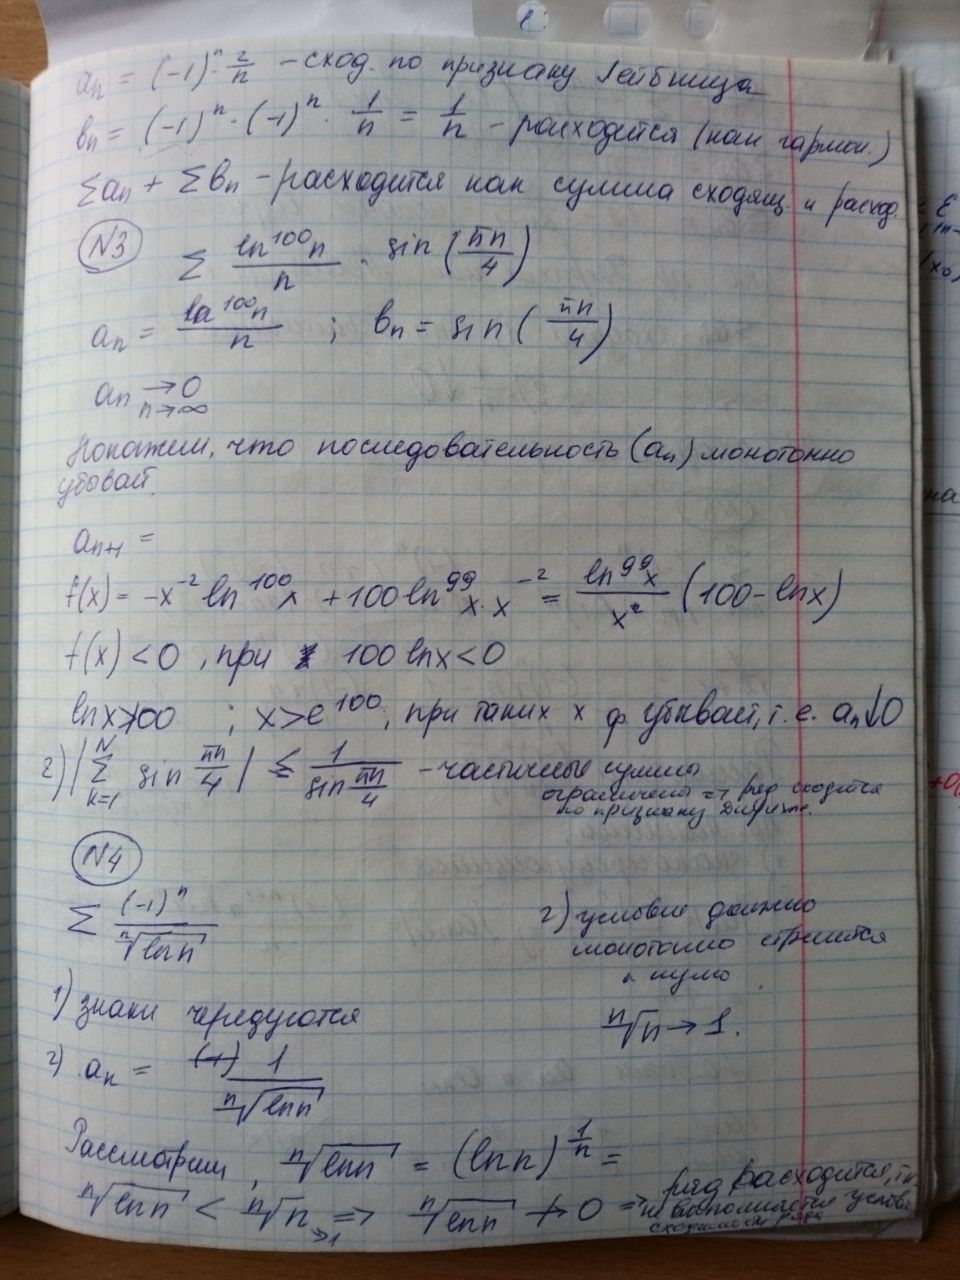 aₙ = (-1)ⁿ · 2/n – сход. по признаку Лейбница
bₙ = (-1)ⁿ · (-1)ⁿ · 1/n = 1/n – расходится (как гармон.)
Σaₙ + Σbₙ – расходится как сумма сходящ. и расход.
N3 Σ ln¹⁰⁰n / n · sin (πn/4)
aₙ = ln¹⁰⁰n / n ; bₙ = sin (πn/4)
aₙ → 0
n→∞
Покажем, что последовательность (aₙ) монотонно
убывает.
aₙ₊₁ =
f(x) = -x⁻² ln¹⁰⁰x + 100 ln⁹⁹x · x⁻² = ln⁹⁹x / x² (100 - lnx)
f(x) < 0 , при 100 lnx < 0
lnx > 100 ; x > e¹⁰⁰, при таких x ф. убывает, т.е. aₙ↓0
2) |Σ sin πn/4| ≤ 1 / sin πn/4 – частичные суммы
N
k=1
ограничены => ряд сходится
по признаку Дирихле.
N4
Σ (-1)ⁿ / ⁿ√lnn
1) знаки чередуются
2) aₙ = 1 / ⁿ√lnn
2) условие должно
монотонно стремится
к нулю
ⁿ√n → 1.
Рассмотрим, ⁿ√lnn = (ln n)^(1/n) =
ⁿ√lnn < ⁿ√n →1 => ⁿ√lnn ↛ 0 => ряд расходится, т.к.
не выполняется услови
сходимости ряда